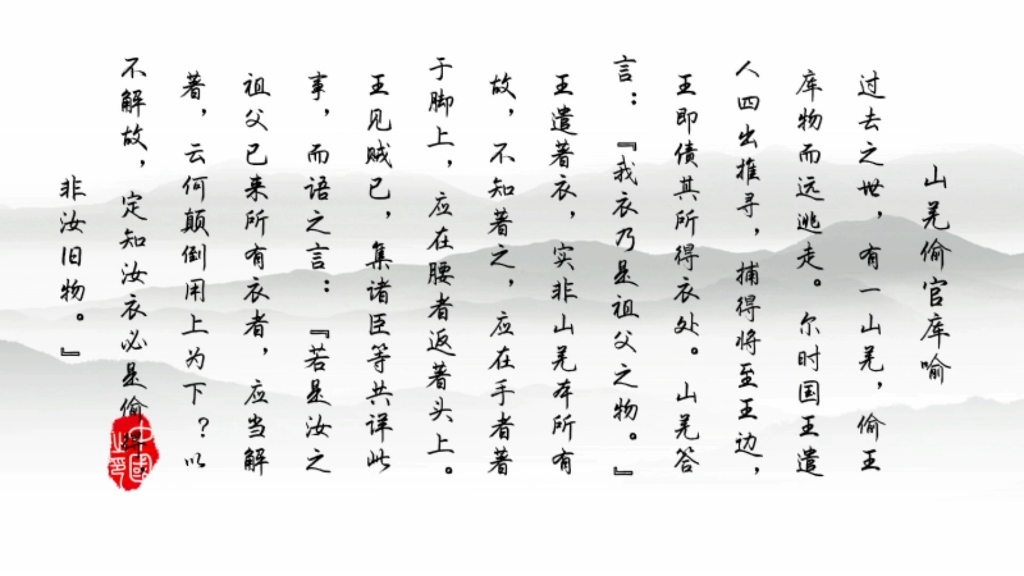 山羌偷官库喻
过去之世，有一山羌，偷王
库物而远逃走。尔时国王遣
人四出推寻，捕得将至王边，
王即债其所得衣处。山羌答
言：『我衣乃是祖父之物。』
王遣著衣，实非山羌本所有
故，不知著之，应在手者著
于脚上，应在腰者返著头上。
王见贼已，集诸臣等共详此
事，而语之言：『若是汝之
祖父已来所有衣者，应当解
著，云何颠倒用上为下？以
不解故，定知汝衣必是偷得，
非汝旧物。』
中国之印